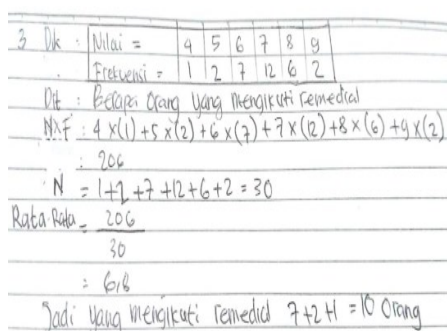 3 Dik : Nilai = 4 5 6 7 8 9
Frekuensi = 1 2 7 12 6 2
Dit : Berapa orang yang mengikuti remedial
NxF : 4 x(1) +5 x(2) +6 x(7) +7 x (12) +8 x (6) +9 x(2)
: 206
N = 1+2+7+12+6+2 = 30
Rata-Rata = 206
30
= 6,8
Jadi yang mengikuti remedial 7+2+1 = 10 orang